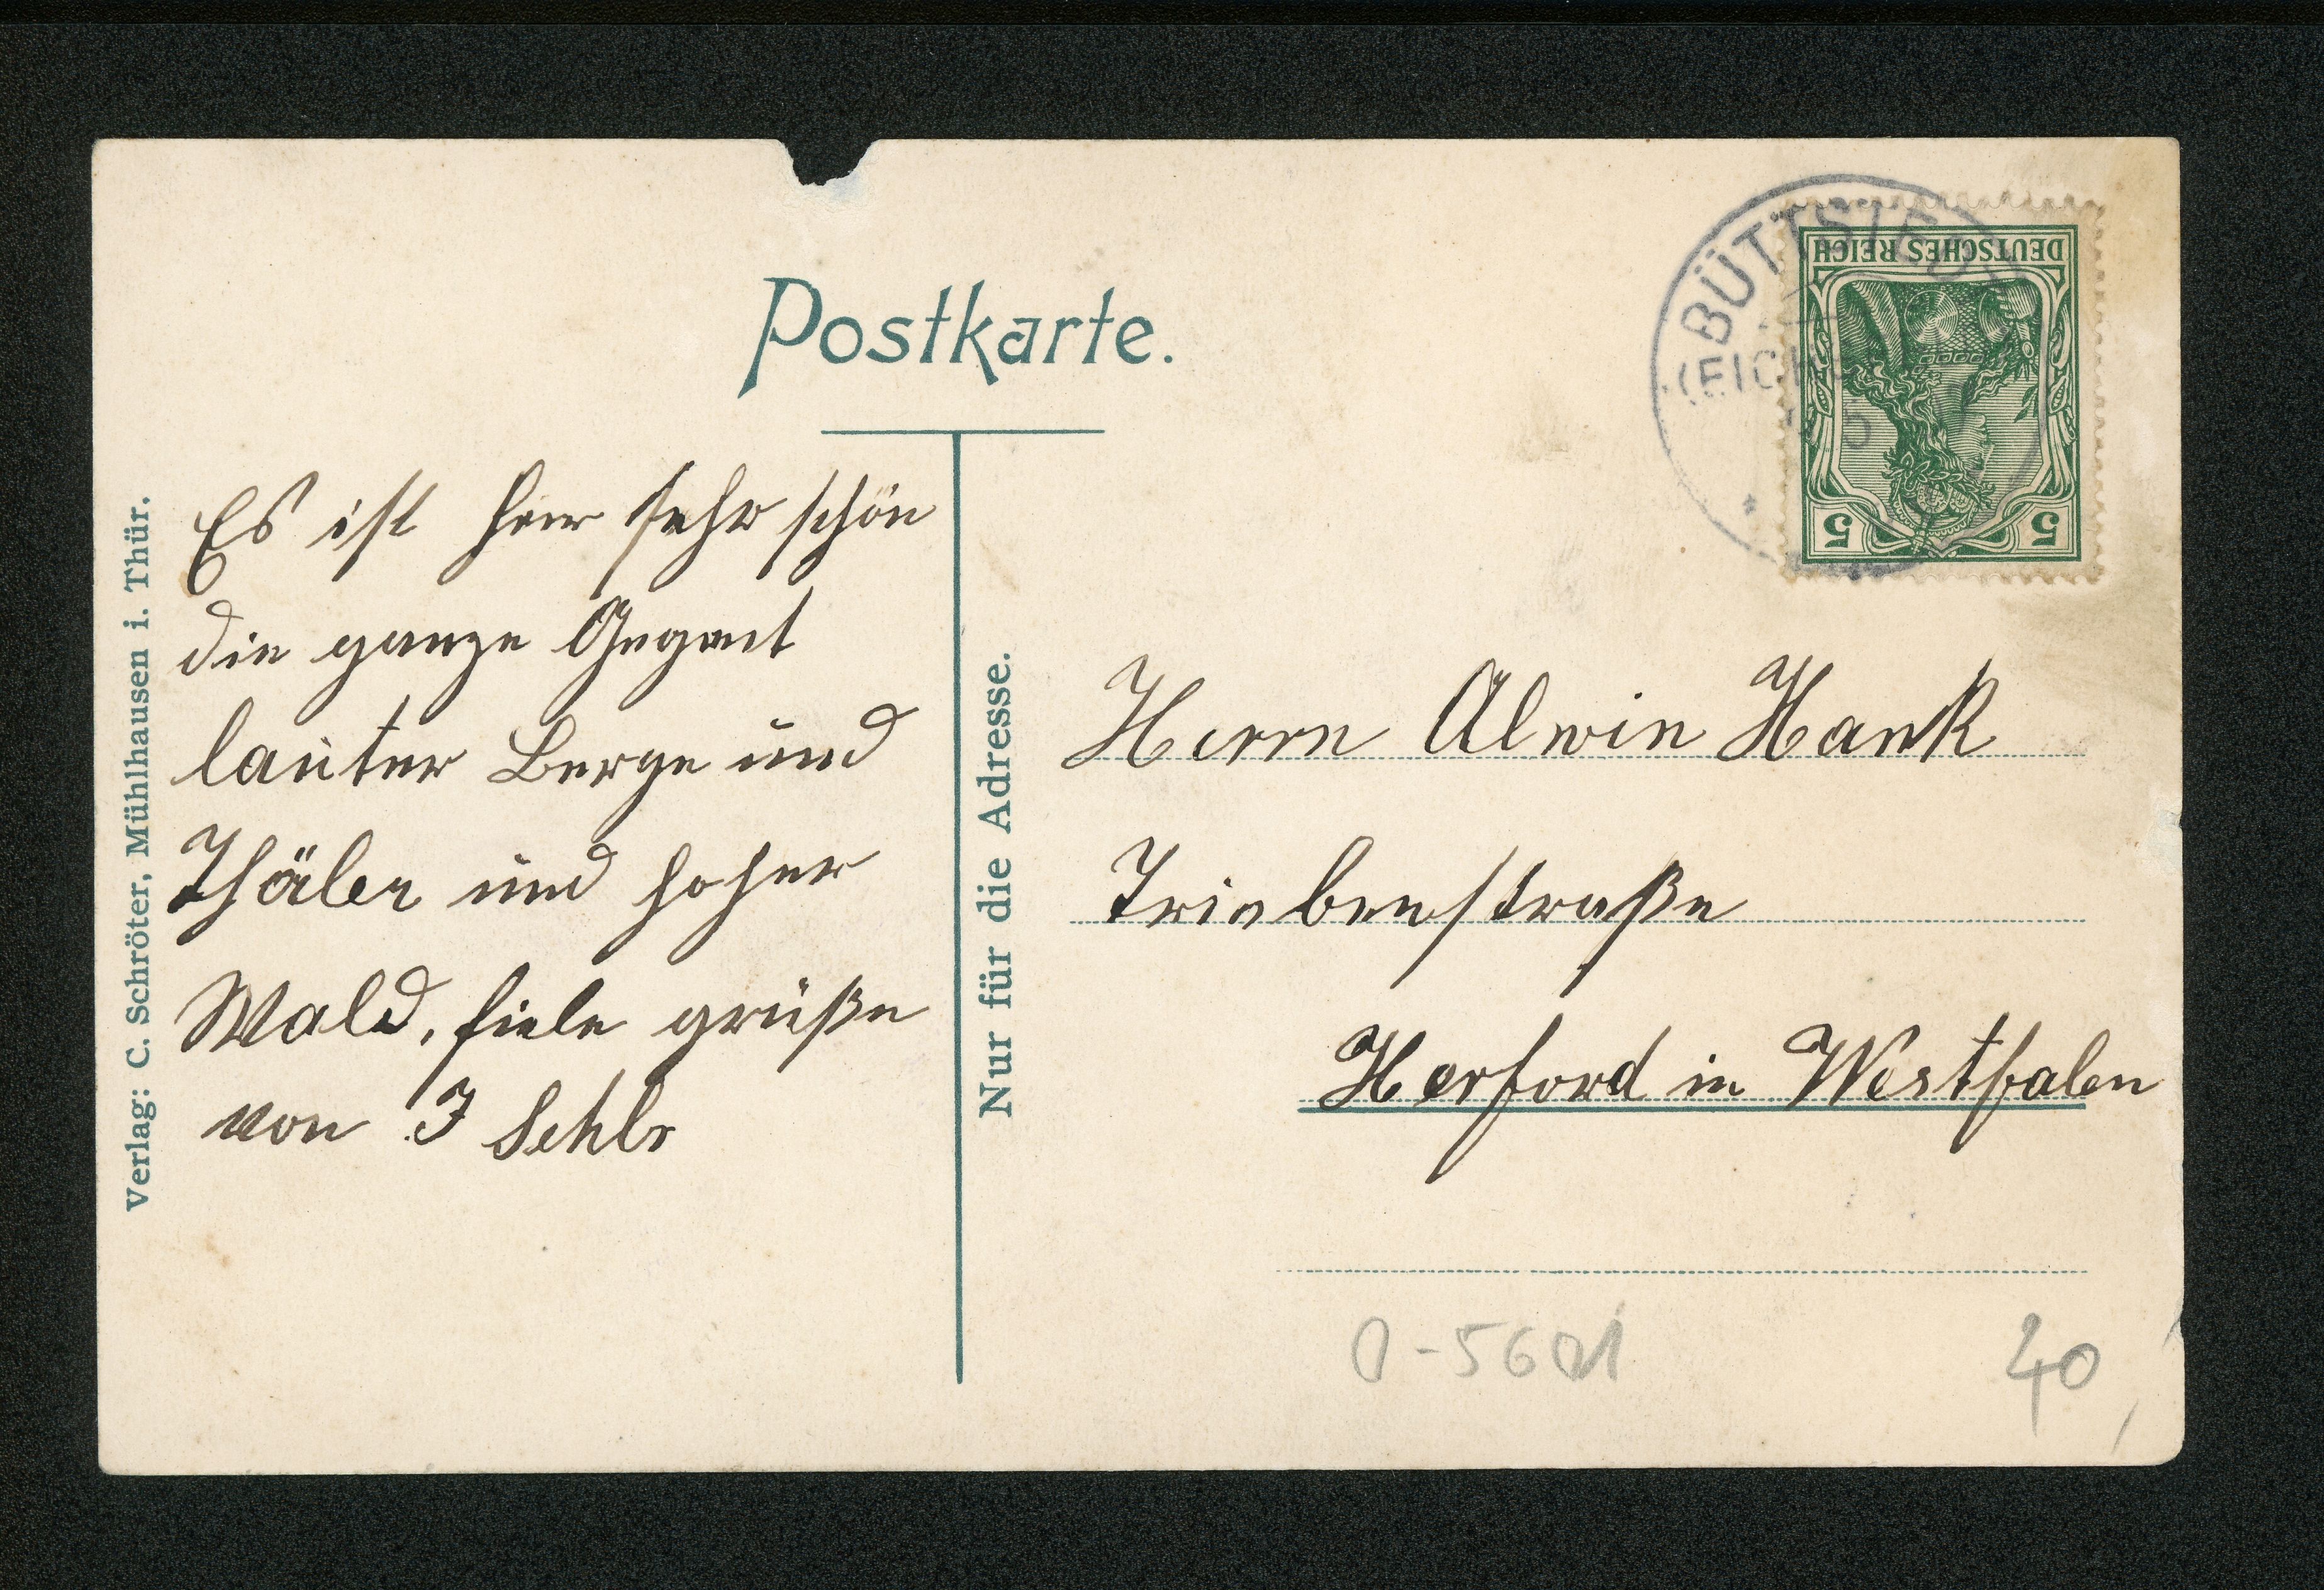 Postkarte.
Verlag: C. Schröter, Mühlhausen i. Thür.
Es ist hier sehr schön
die ganze Gegent
lauter Berge und
Thäler und hoher
Wald, fiele grüße
von J
Nur für die Adresse.
Herrn Alwin Hank
Triebenstraße
Herford in Westfalen
BÜTTSTEDT
(EICHS
DEUTSCHES REICH
5 5
0-5601
40